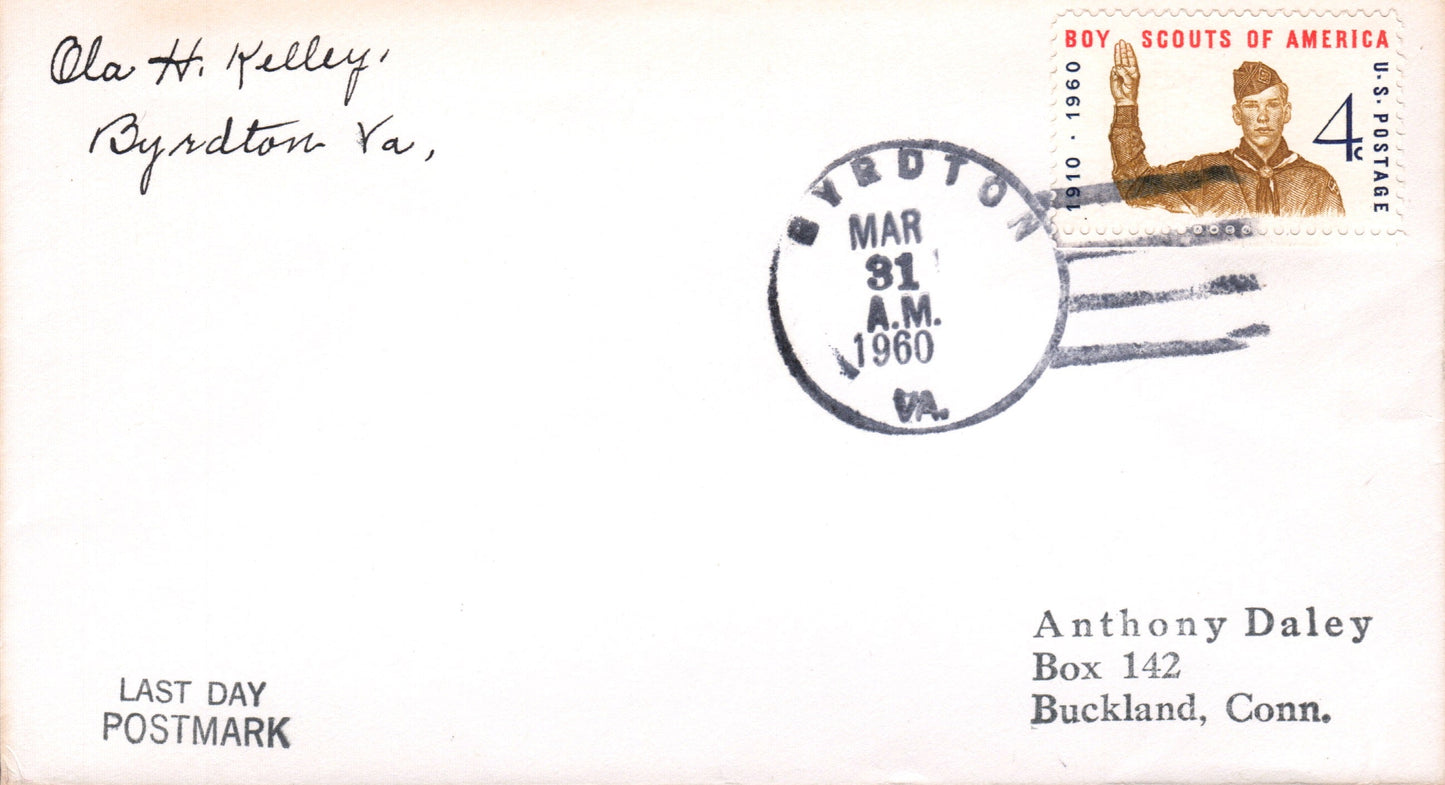 Ola H. Kelley,
Byrdton Va,
BOY SCOUTS OF AMERICA
1910 · 1960
4c
U·S·POSTAGE
BYRDTON
MAR
31
A.M.
1960
VA.
Anthony Daley
Box 142
Buckland, Conn.
LAST DAY
POSTMARK